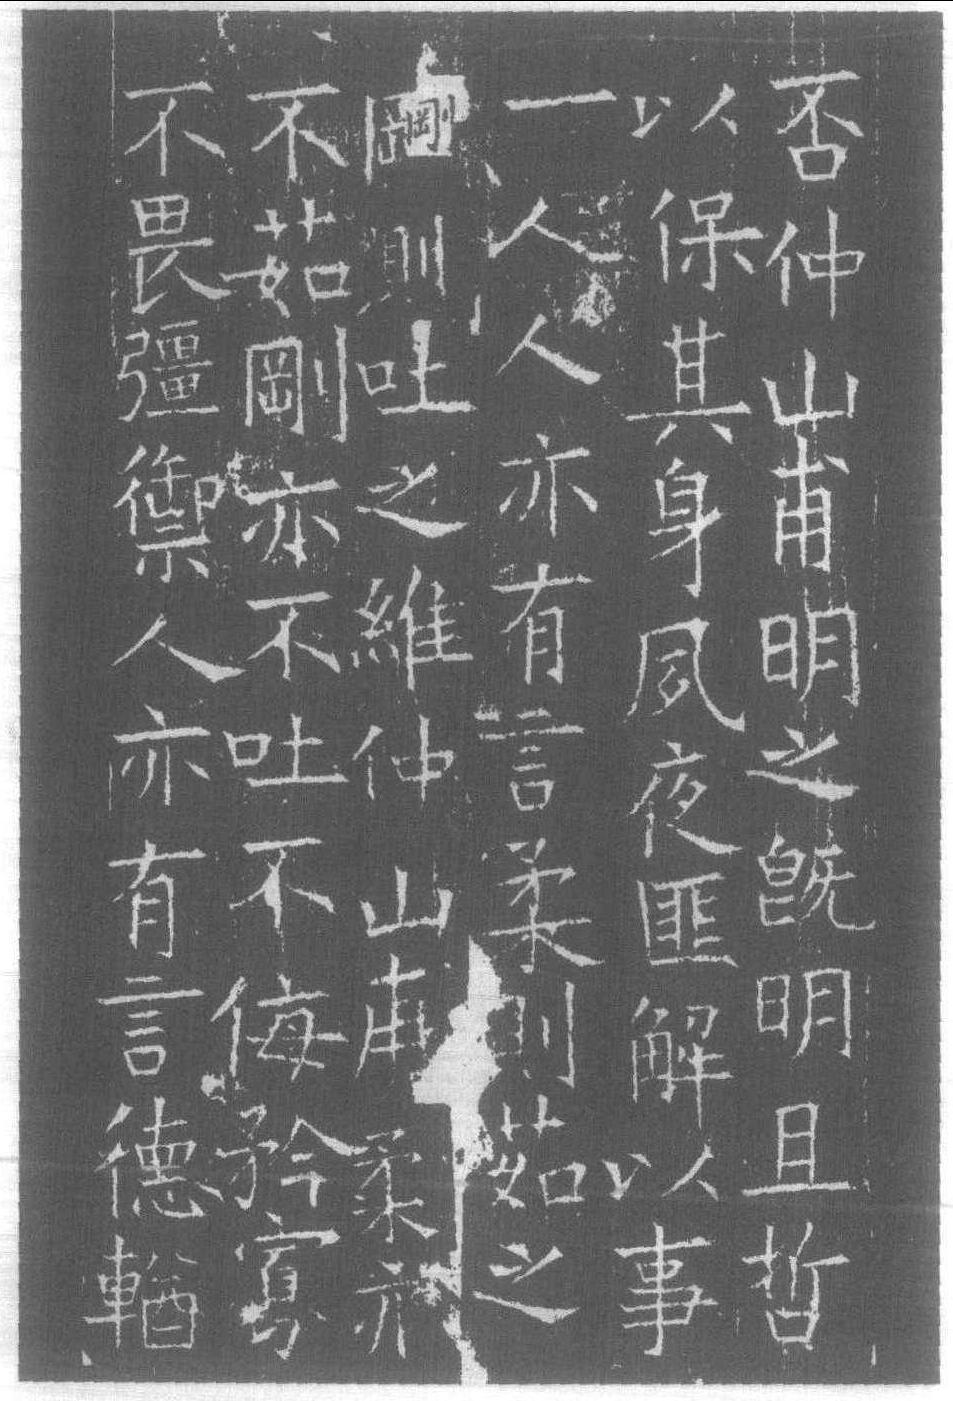 否仲山甫明之旣明且哲
以保其身夙夜匪解以事
一人人亦有言柔則茹之
剛則吐之維仲山甫柔亦
不茹剛亦不吐不侮矜寡
不畏彊禦人亦有言德輶